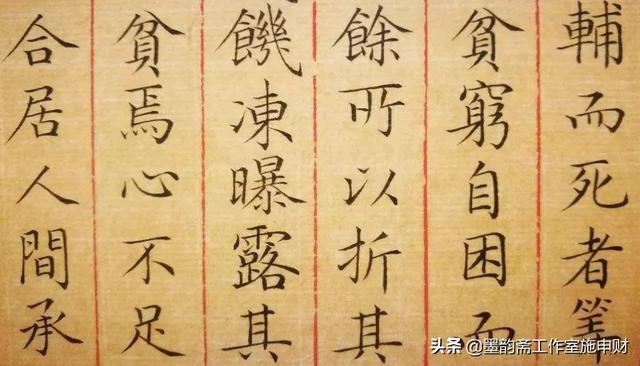 輔而死者筭
貧窮自困而
餘所以折其
饑凍曝露其
貧焉心不足
合居人間承
头条 @墨韵斋工作室施申财